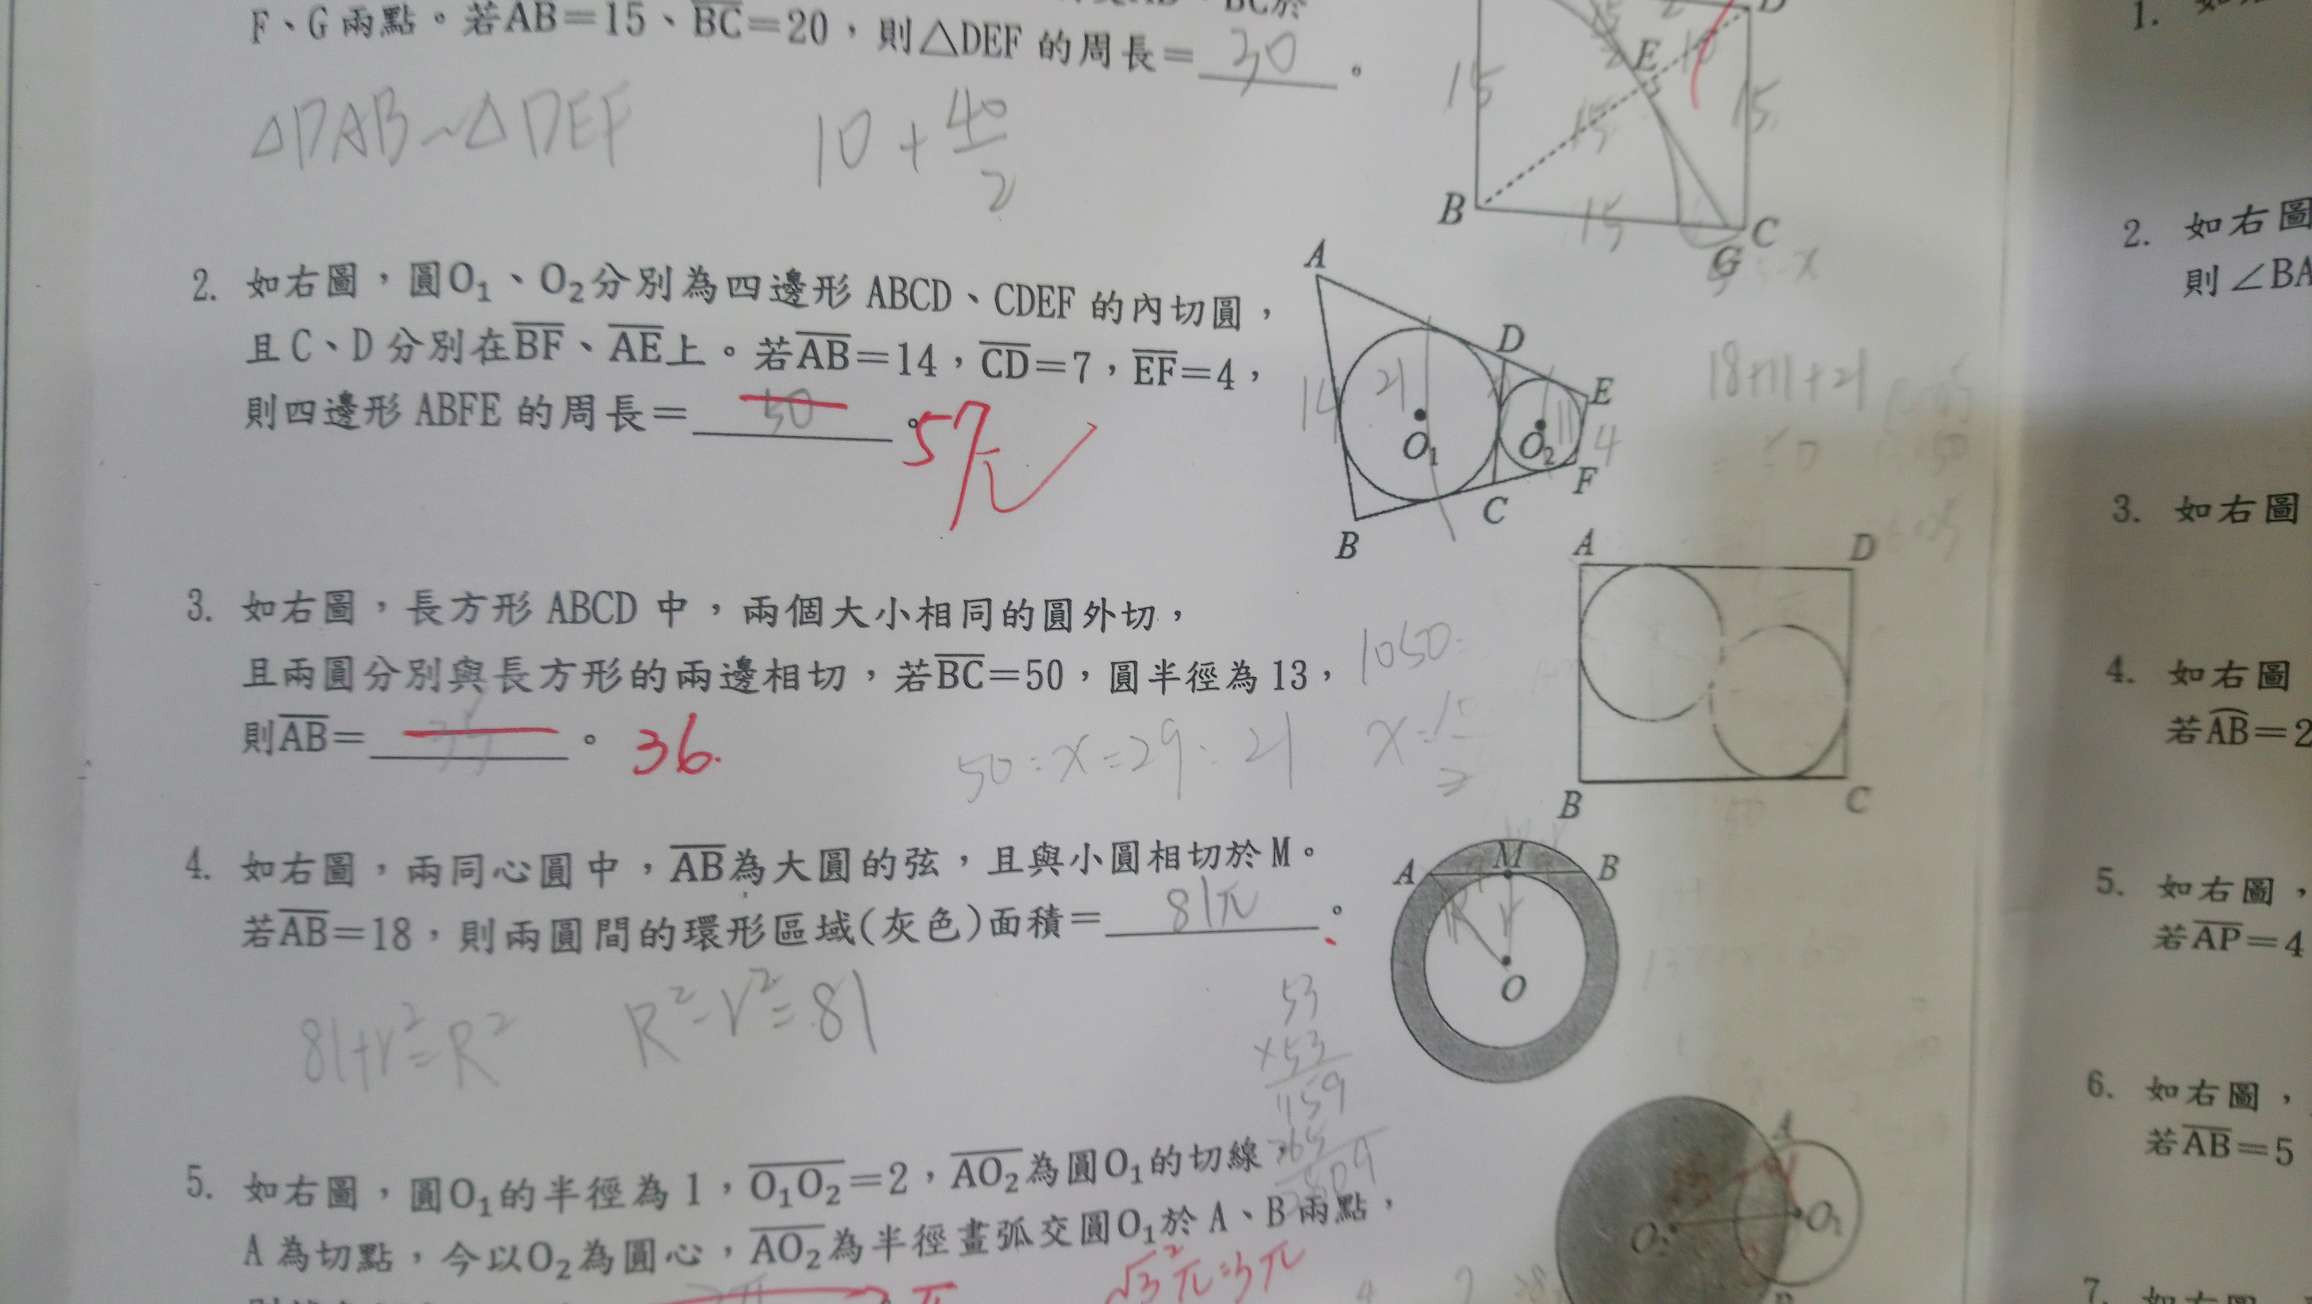 F、G 兩點。若AB=15、BC=20，則△DEF 的周長= 30 。
△DAB~△DEF
10 + 40/2
15
E
D
15
15
15
B
G
C
2. 如右圖，圓O₁、O₂分別為四邊形 ABCD、CDEF 的內切圓，
且 C、D 分別在BF、AE上。若AB=14，CD=7，EF=4，
則四邊形 ABFE 的周長= 50 。 57
A
D
E
14
21
O₁
O₂
11
4
F
C
B
18+11+21
3. 如右圖，長方形 ABCD 中，兩個大小相同的圓外切，
且兩圓分別與長方形的兩邊相切，若BC=50，圓半徑為 13，
則AB= 。 36.
50:x=29:21
1050
A
D
B
C
4. 如右圖，兩同心圓中，AB為大圓的弦，且與小圓相切於 M。
若AB=18，則兩圓間的環形區域(灰色)面積= 81π 。
81+r²=R²
R²-r²=81
A
M
B
R
r
O
53
×53
159
5. 如右圖，圓O₁的半徑為 1，O₁O₂=2，AO₂為圓O₁的切線，
A 為切點，今以O₂為圓心，AO₂為半徑畫弧交圓O₁於 A、B 兩點，
√3²π=3π
A
O₂
O₁
1.
2. 如右圖
則 ∠BA
3. 如右圖
4. 如右圖
若AB=2
5. 如右圖，
若AP=4
6. 如右圖，
若AB=5
7. 如右圖